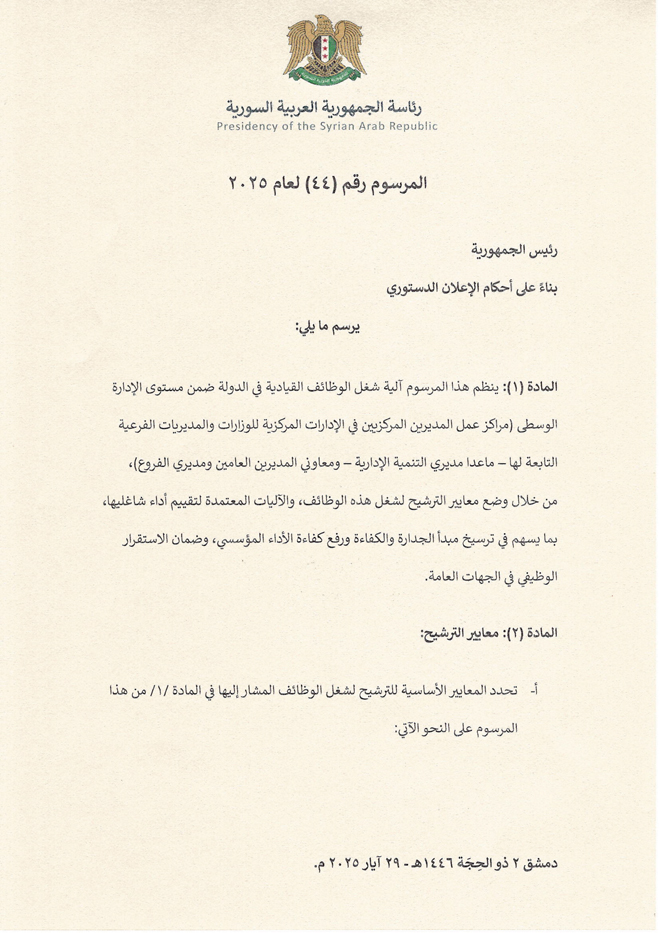 رئاسة الجمهورية العربية السورية
Presidency of the Syrian Arab Republic
المرسوم رقم (٤٤) لعام ٢٠٢٥
رئيس الجمهورية
بناءً على أحكام الإعلان الدستوري
يرسم ما يلي:
المادة (١): ينظم هذا المرسوم آلية شغل الوظائف القيادية في الدولة ضمن مستوى الإدارة
الوسطى (مراكز عمل المديرين المركزيين في الإدارات المركزية للوزارات والمديريات الفرعية
التابعة لها – ماعدا مديري التنمية الإدارية – ومعاوني المديرين العامين ومديري الفروع)،
من خلال وضع معايير الترشيح لشغل هذه الوظائف، والآليات المعتمدة لتقييم أداء شاغليها،
بما يسهم في ترسيخ مبدأ الجدارة والكفاءة ورفع كفاءة الأداء المؤسسي، وضمان الاستقرار
الوظيفي في الجهات العامة.
المادة (٢): معايير الترشيح:
أ- تحدد المعايير الأساسية للترشيح لشغل الوظائف المشار إليها في المادة /١/ من هذا
المرسوم على النحو الآتي:
دمشق ٢ ذو الحِجَة ١٤٤٦هـ - ٢٩ آيار ٢٠٢٥ م.